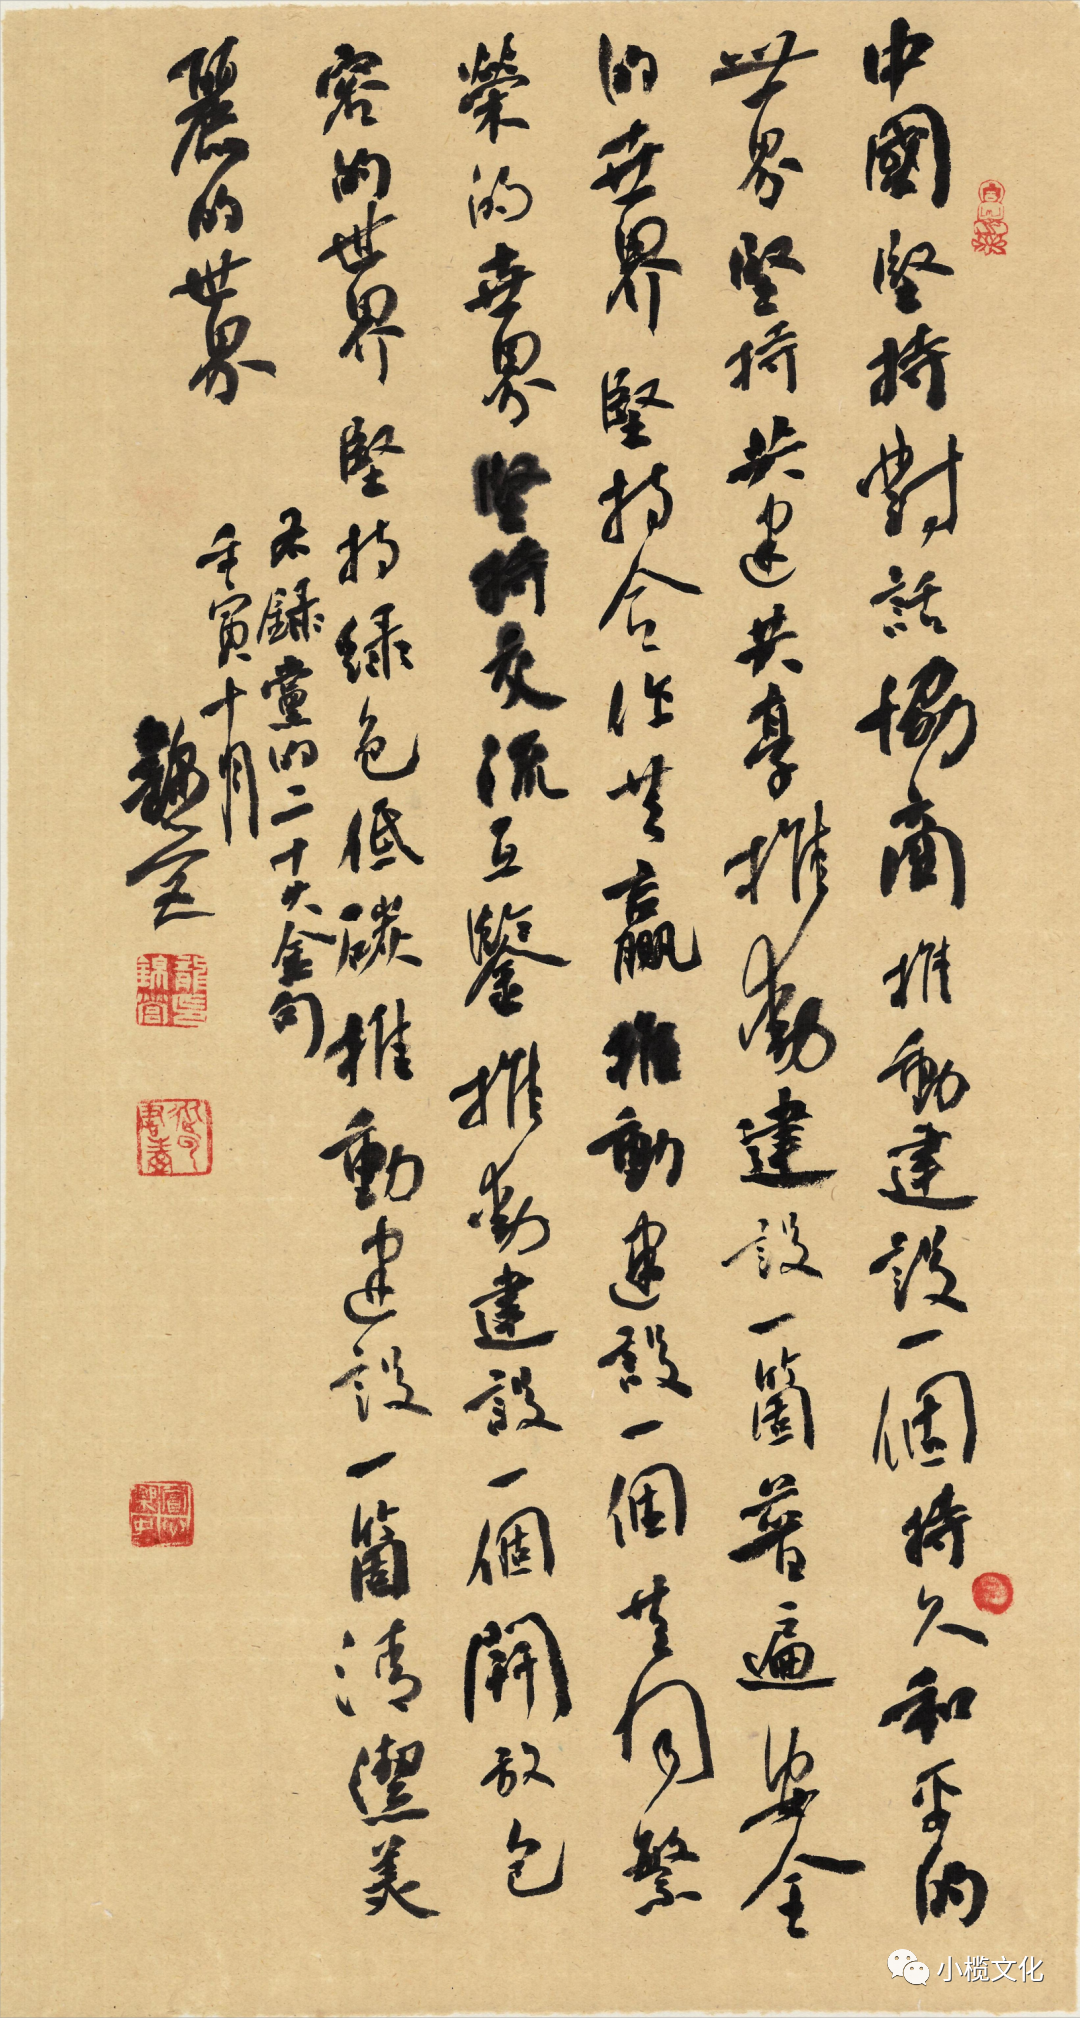 中國堅持對話協商推動建設一個持久和平的
世界堅持共建共享推動建設一箇普遍安全
的世界堅持合作共贏推動建設一個共同繁
榮的世界堅持交流互鑒推動建設一個開放包
容的世界堅持綠色低碳推動建設一箇清潔美
麗的世界
右録黨的二十大金句
壬寅十月
小榄文化